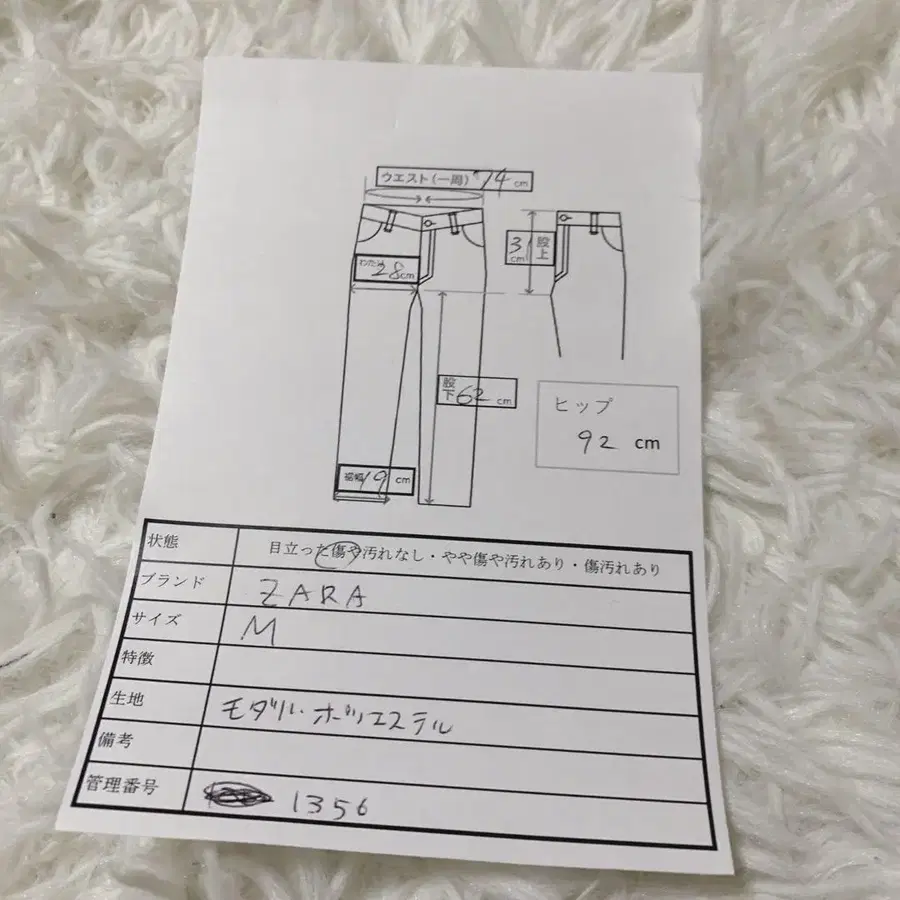 ウエスト(一周) 74 cm
わたり 28cm
3 股上
cm
股下 62 cm
裾幅 19 cm
ヒップ
92 cm
状態 目立った傷や汚れなし・やや傷や汚れあり・傷汚れあり
ブランド ZARA
サイズ M
特徴
生地 モダル・ポリエステル
備考
管理番号 1356